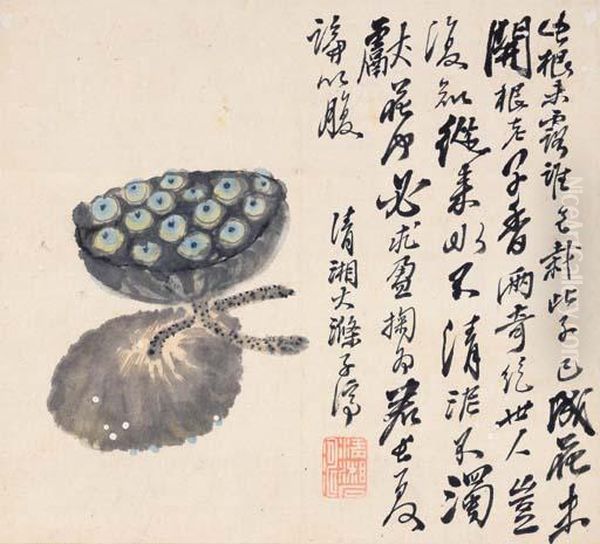 根未露誰此子已成花未
開根老子香兩奇絕世人豈
復知從来不清泥不濁
獻花必求盈掬為君
論以腹
清湘大滌子濟
清湘石
NiceArtGallery.com